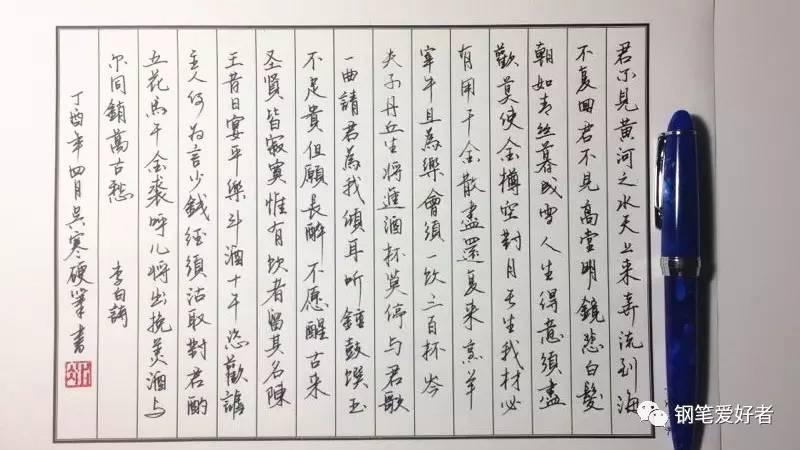 君不見黃河之水天上来奔流到海
不复回君不見高堂明鏡悲白髮
朝如青丝暮成雪人生得意須盡
歡莫使金樽空對月天生我材必
有用千金散盡還复来烹羊
宰牛且為樂會須一饮三百杯岑
夫子丹丘生将進酒杯莫停与君歌
一曲請君為我傾耳听鍾鼓馔玉
不足貴但願長醉不愿醒古来
圣賢皆寂寞惟有饮者留其名陳
王昔日宴平樂斗酒十千恣歡謔
主人何为言少錢径須沽取對君酌
五花馬千金裘呼儿将出换美酒与
尔同銷萬古愁 李白詩
丁酉年四月吴寒硬筆書
钢笔爱好者